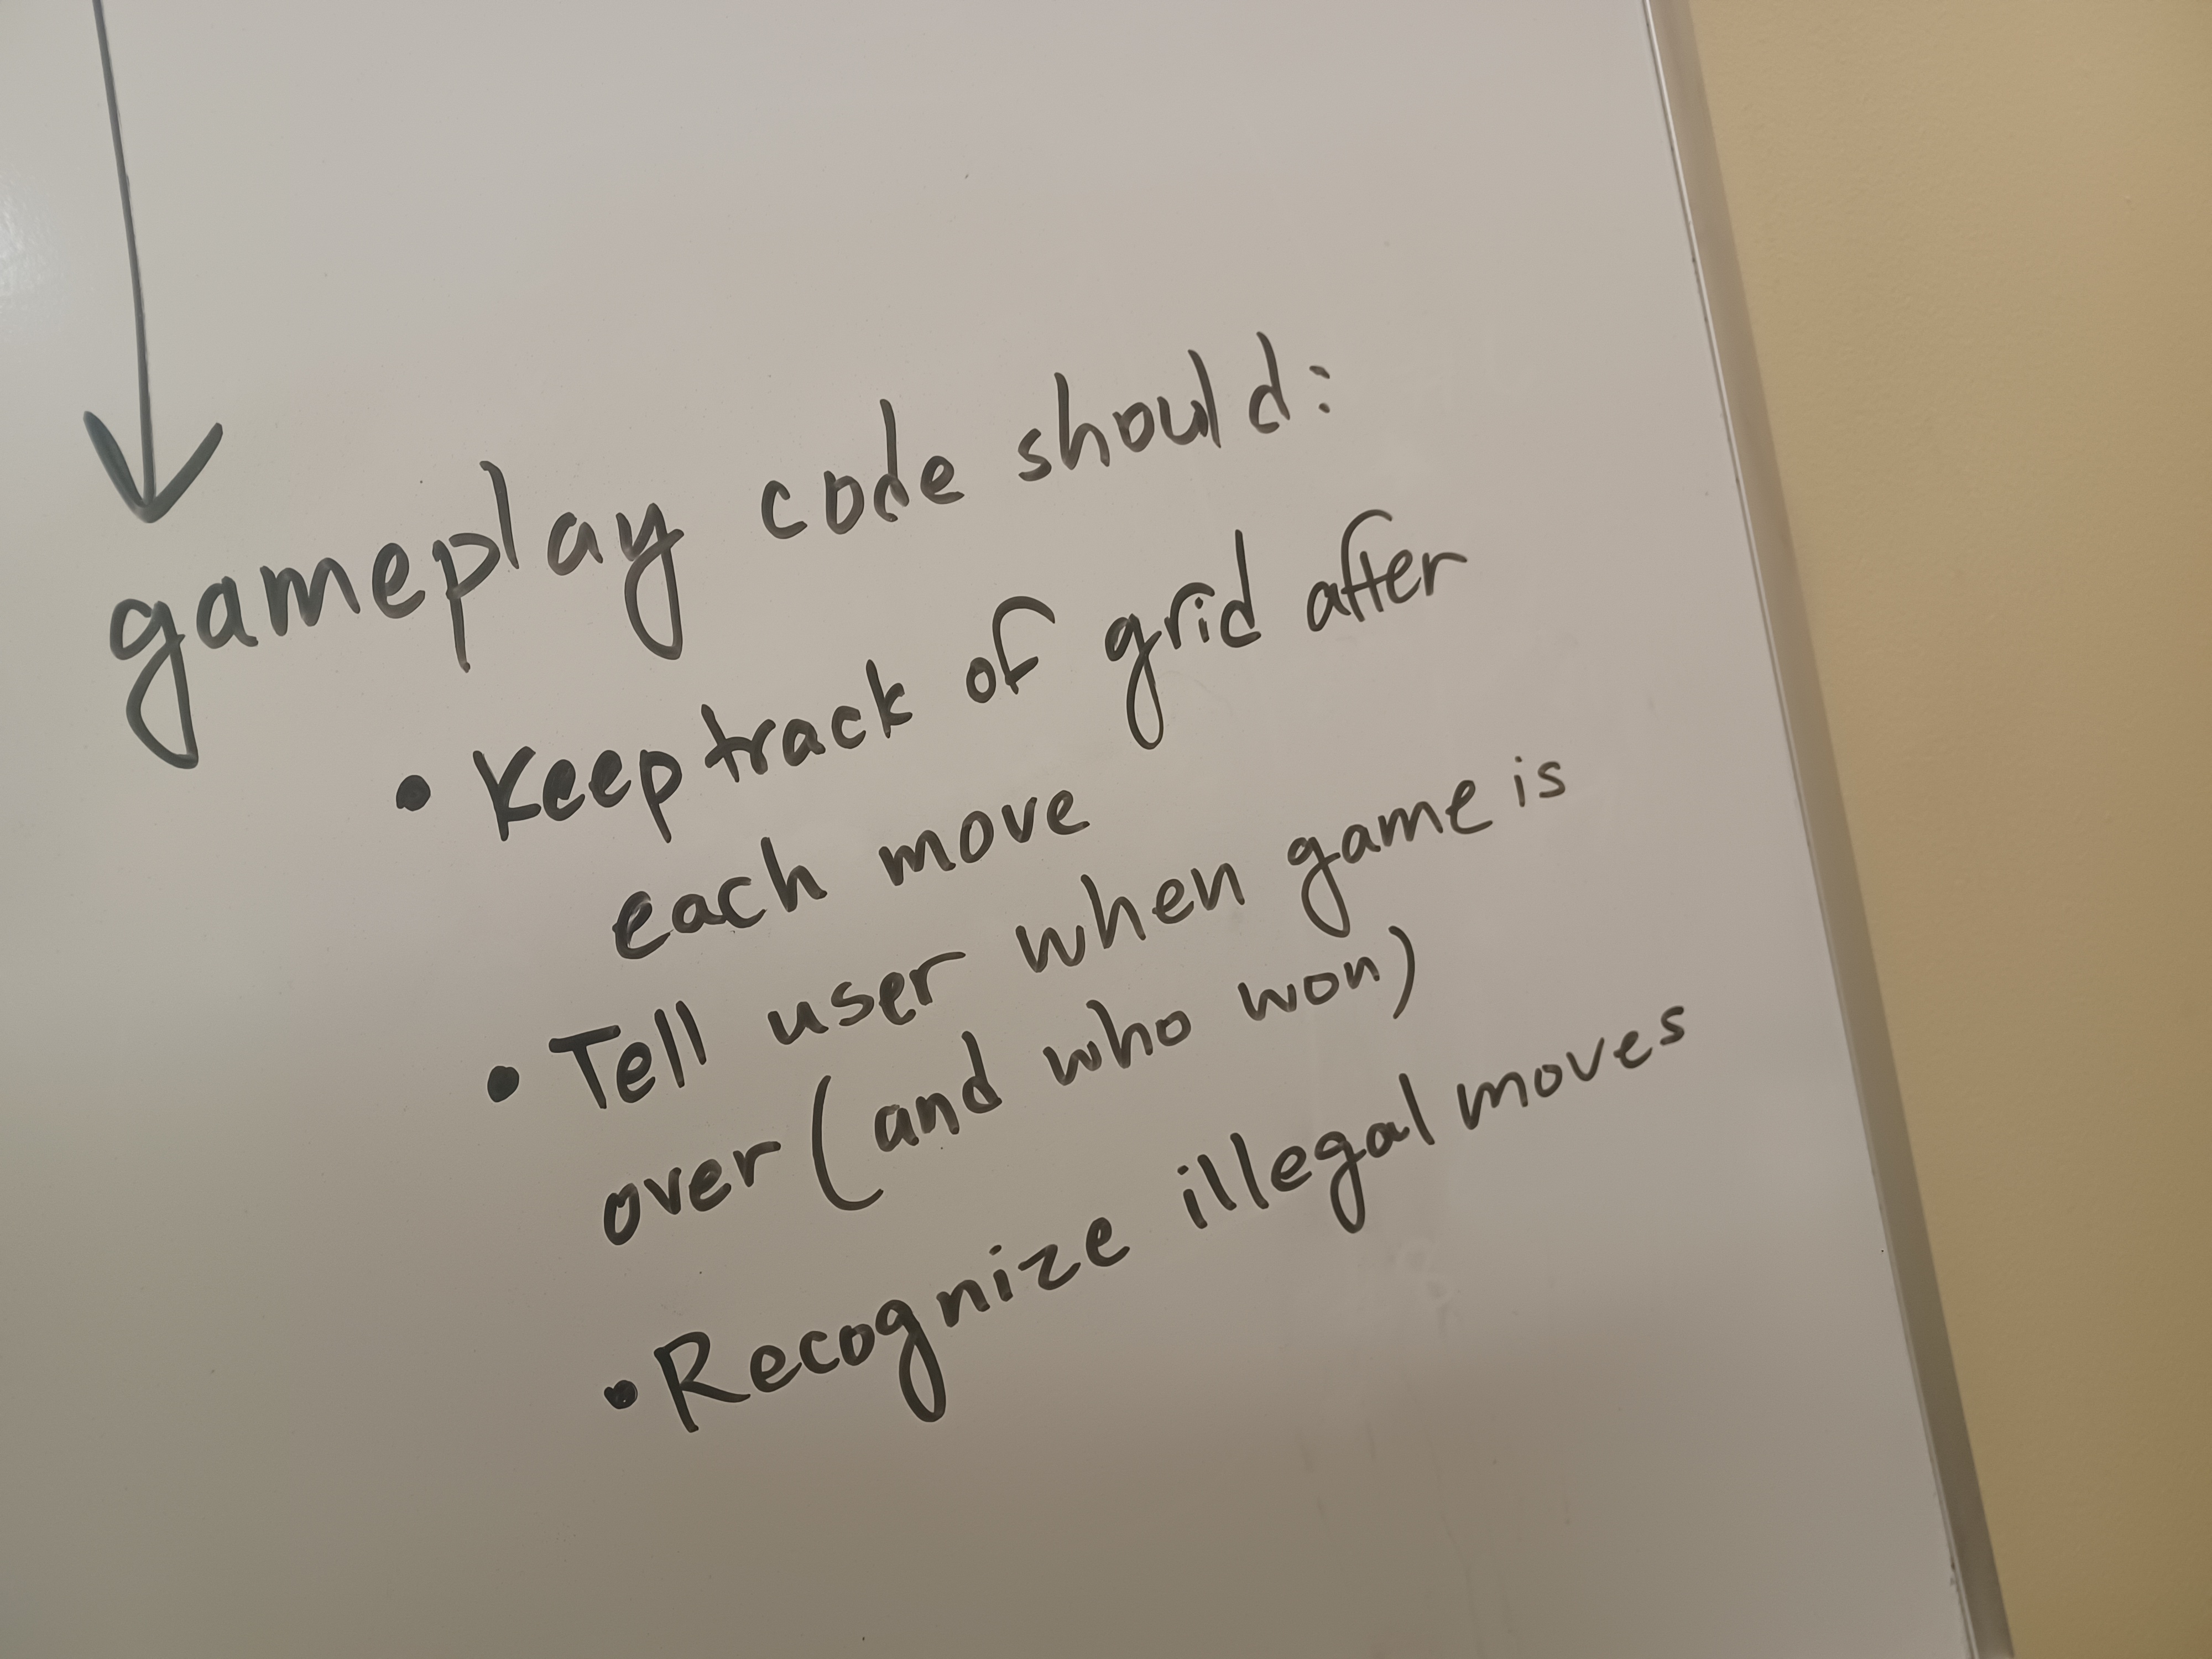 gameplay code should:
• Keep track of grid after
each move
• Tell user when game is
over (and who won)
• Recognize illegal moves